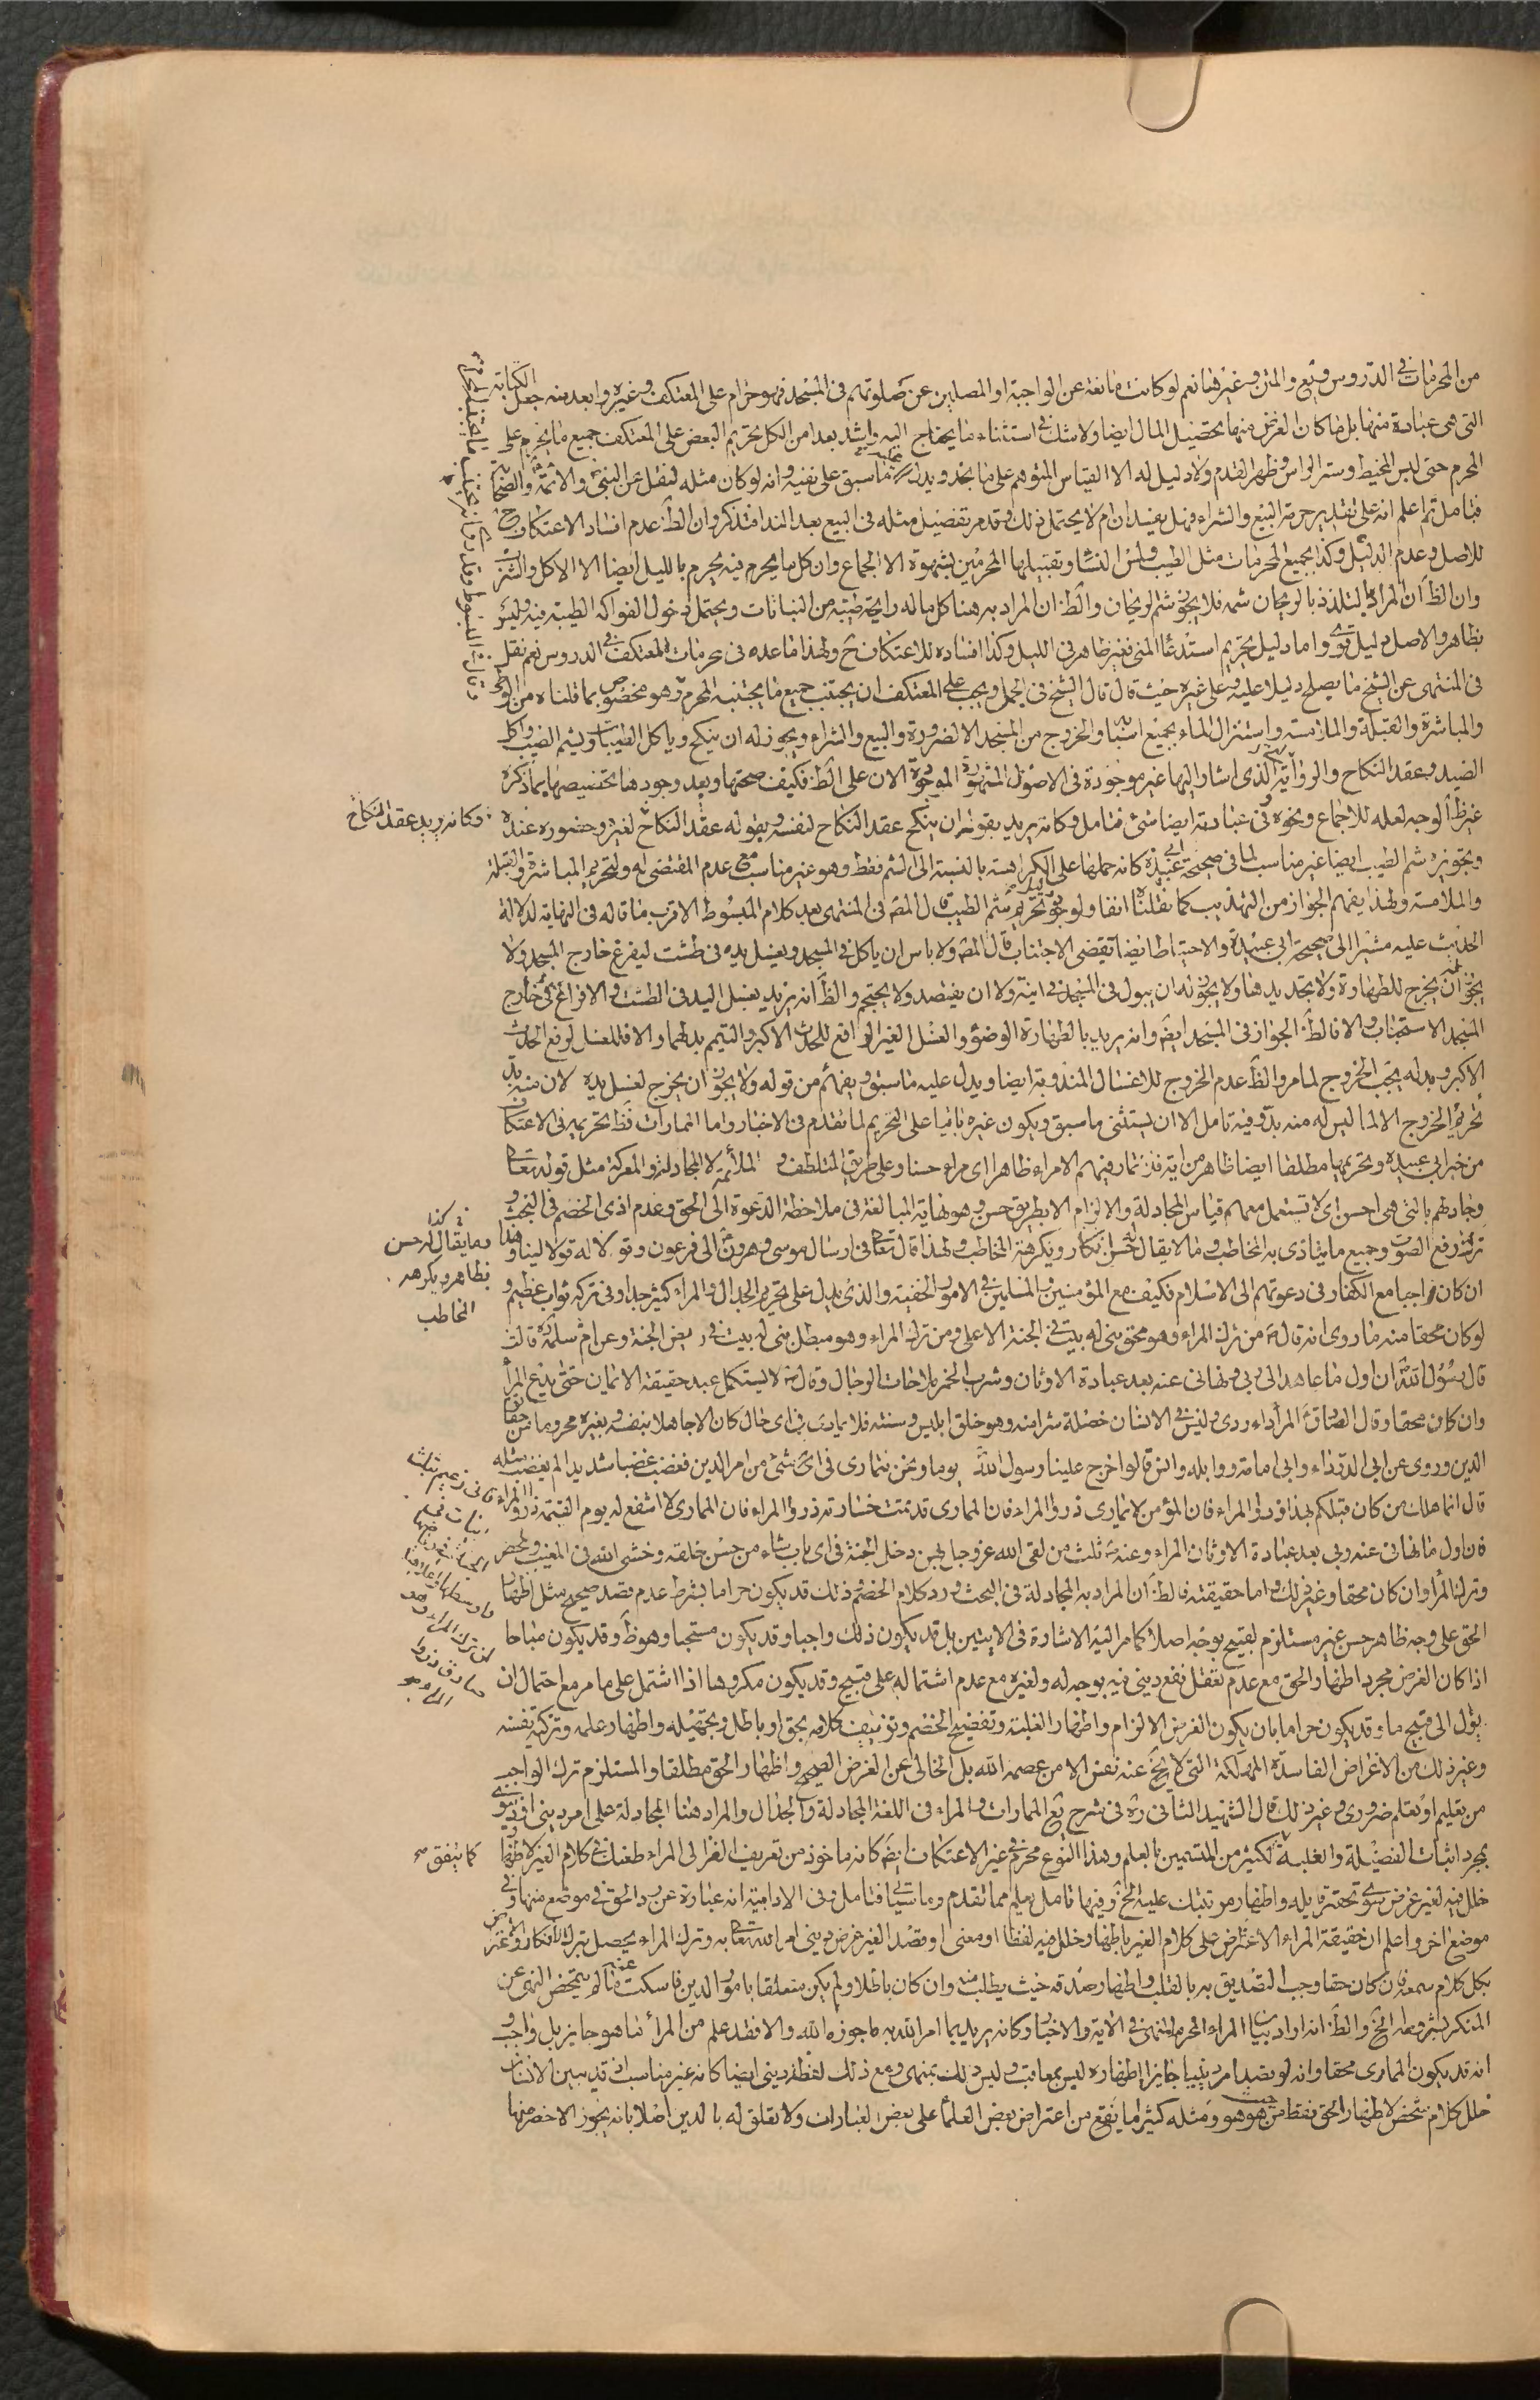 من المحرمات في الدروس وتبع والمتن وغيرها نعم لو كانت مانعة عن الواجبة او المصلين عن صلوتهم في المسجد فهو حرام على المعتكف وغيره وابعد منه جعل الكتابة
التي هي عبادة منها بل ما كان الغرض منها تحصيل المال ايضا ولا شك في استثناء ما يحتاج اليه واشد بعدا من الكل تحريم البعض على المعتكف جميع ما يحرم على
المحرم حتى لبس المخيط وستر الراس وظهر القدم ولا دليل له الا القياس المتوهم على ما نجد ويدل ما سبق على نفيه وانه لو كان مثله لنقل عن النبي والائمة والصحابة
فتامل ثم اعلم انه على تقدير حرمة البيع والشراء فهل يفسدان ام لا يحتمل ذلك وقد مر تفصيل مثله في البيع بعد الندا فتذكر وان الظ عدم افساد الاعتكاف ح
للاصل وعدم الدليل وكذا بجميع المحرمات مثل الطيب ولمس النساء وتقبيلها المحرمين بشهوة الا الجماع وان كل ما يحرم فيه يحرم بالليل ايضا الا الاكل والشرب
وان الظ ان المراد التلذذ بالريحان شمه فلا يجوز شم الريحان والظ ان المراد به هنا كل ما له رايحة طيبة من النباتات ويحتمل دخول الفواكه الطيبة فيه وليس
بظاهر والاصل دليل قوي واما دليل تحريم استدعاء المني فغير ظاهر في الليل وكذا افساده للاعتكاف ح ولهذا ما عده في محرمات المعتكف في الدروس نعم نقل
في المنتهى عن الشيخ ما يصلح دليلا عليه وعلى غيره حيث قال قال الشيخ في الجمل ويجب على المعتكف ان يجتنب جميع ما يجتنبه المحرم وهو مخصوص بما قلناه من الوطي
والمباشرة والقبلة والملامسة واستنزال الماء بجميع اسبابه والخروج من المسجد الا لضرورة والبيع والشراء ويجوز له ان ينكح وياكل الطيبات ويشم الطيب واكل
الصيد وعقد النكاح والرواية الذي اشار اليها غير موجودة في الاصول المشهورة الموجودة الان على الظ فكيف صحتها وبعد وجودها تخصيصها بما ذكره
غير ظ الوجه لعله للاجماع ونحوه وفي عبادته ايضا شئ فتامل وكانه يريد بقوله ان ينكح عقد النكاح لنفسه وبقوله عقد النكاح لغيره وحضوره عنده
وتجويزه شم الطيب ايضا غير مناسب لما في صحيحة ابي عبيدة كانه حملها على الكراهة بالنسبة الى الشم فقط وهو غير مناسب مع عدم المقتضى له ولتحريم المباشرة والقبلة
والملامسة ولهذا يفهم الجواز من التهذيب كما نقلناه انفا ولوجوه تحريم شم الطيب قال المص في المنتهى بعد كلام المبسوط الاقرب ما قاله في النهاية لدلالة
الحديث عليه مشيرا الى صحيحة ابي عبيدة والاحتياط ايضا يقتضي الاجتناب قال المص ولا باس ان ياكل في المسجد ويغسل يده في طشت ليفرغ خارج المسجد ولا
يجوز ان يخرج للطهارة ولا تجديدها ولا يجوز له ان يبول في المسجد في انية ولا ان يفتصد ولا يحتجم والظ انه يريد بغسل اليد في الطشت والافراغ في خارج
المسجد الاستحباب والا فالظ الجواز في المسجد ايض وانه يريد بالطهارة الوضوء والغسل الغير الرافع للحدث الاكبر والتيمم بدلهما والا فللغسل لرفع الحدث
الاكبر وبدله يجب الخروج لما مر والظ عدم الخروج للاغسال المندوبة ايضا ويدل عليه ما سبق ويفهم من قوله ولا يجوز ان يخرج لغسل يده لان منه بد
تحريم الخروج الا لما ليس له منه بد وفيه تامل الا ان يستثنى ما سبق ويكون غيره باقيا على التحريم لما تقدم في الاخبار واما الممارات فظ تحريمه في الاعتكاف
من خبر ابي عبيدة وتحريمها مطلقا ايضا ظاهر من اية فلا تمار فيهم الا مراء ظاهرا اي مراء حسنا وعلى طريق التلطف و الملائمة لا المجادلة والمعركة مثل قوله تعالى
وجادلهم بالتي هي احسن اي لا تستعمل معهم قياس المجادلة والالزام الا بطريق حسن وهو نهاية المبالغة في ملاحظة الدعوة الى الحق وعدم اذى الخصم في البحث و
ترك رفع الصوت وجميع ما يتاذى به المخاطب وما لا يقال انكار ويكرهه المخاطب ولهذا قال تعالى في ارسال موسى وهرون الى فرعون وقولا له قولا لينا وهذا
ان كان واجبا مع الكفار في دعوتهم الى الاسلام فكيف مع المؤمنين والمسلمين في الامور الخفية والذي يدل على تحريم الجدال والمراء كثير جدا وفي تركه ثواب عظيم و
لو كان محقا منه ما روي انه قال ص من ترك المراء وهو محق بني له بيت في الجنة الاعلى ومن ترك المراء وهو مبطل بني له بيت في ربض الجنة وعن ام سلمة قالت
قال رسول الله ان اول ما عاهد الي ربي ونهاني عنه بعد عبادة الاوثان وشرب الخمر ملاحات الرجال وقال ص لا يستكمل عبد حقيقة الايمان حتى يدع المراء
وان كان محقا وقال الصادق المراء داء ردي وليس في الانسان خصلة شر منه وهو خلق ابليس ونسبته فلا يماري في اي حال كان الا جاهلا بنفسه وبغيره محروما من حقايق
الدين وروي عن ابي الدرداء وابي امامة وواثلة وانس قالوا خرج علينا رسول الله يوما ونحن نتمارى في شئ من امر الدين فغضب غضبا شديدا لم يغضب مثله
قال انما هلك من كان قبلكم بهذا ذروا المراء فان المؤمن لا يماري ذروا المراء فان المماري قد تمت خسارته ذروا المراء فان المماري لا اشفع له يوم القيمة ذروا المراء
فان اول ما نهاني عنه ربي بعد عبادة الاوثان المراء وعنه ص ثلث من لقى الله عز وجل بهن دخل الجنة من اي باب شاء من حسن خلقه وخشى الله في المغيب والمحضر
وترك المراء وان كان محقا وغير ذلك واما حقيقته فالظ ان المراد به المجادلة في البحث ورد كلام الخصم ذلك قد يكون حراما بشرط عدم قصد صحيح مثل اظهار
الحق على وجه ظاهر حسن غير مستلزم لقبيح بوجه اصلا كما مر اليه الاشارة في الايتين بل قد يكون ذلك واجبا وقد يكون مستحبا وهو ظ وقد يكون مباحا
اذا كان الغرض مجرد اظهار الحق مع عدم تعقل نفع ديني فيه بوجه له ولغيره مع عدم اشتماله على قبيح وقد يكون مكروها اذا اشتمل على ما مر مع احتمال ان
يؤل الى قبيح ماء وقد يكون حراما بان يكون الغرض الالزام واظهار الغلبة وتفضيح الخصم وتزييف كلامه بحق او باطل وتجهيله واظهار علمه وتزكية نفسه
وغير ذلك من الاغراض الفاسدة المهلكة التي لا يخ عنه نفس الا من عصمه الله بل الخالي عن الغرض الصحيح واظهار الحق مطلقا والمستلزم ترك الواجب
من تعليم او تعلم ضروري وغير ذلك قال الشهيد الثاني ره في شرح يع الممارات والمراء في اللغة المجادلة والجدال والمراد هنا المجادلة على امر ديني او دنيوي
بمجرد اثبات الفضيلة والغلبة لكثير من المتسمين بالعلم وهذا النوع محرم في غير الاعتكاف ايض كانه ماخوذ من تعريف الغزالي المراء طعنك في كلام الغير لاظهار
خلل فيه لغير غرض سوى تحقير قايله واظهار مرتبتك عليه الخ وفيها تامل يعلم مما تقدم وما سياتي فتامل وفي الادامية انه عبارة عن رد الحق في موضع منها وفي
موضع اخر واعلم ان حقيقة المراء الاعتراض على كلام الغير باظهار خلل فيه لفظا او معنى او قصد الغير غرض ديني امر الله تعالى به وترك المراء يحصل بترك الانكار والاعتراض
بكل كلام سمعه فان كان حقا وجب التصديق به بالقلب واظهار صدقه حيث يطلب منه وان كان باطلا ولم يكن متعلقا بامور الدين فاسكت عنه ما لم يتمحض النهي عن
المنكر بشروطه الخ والظ انه اراد بيان المراء المحرم المنهي في الاية والاخبار وكانه يريد بما امر الله به ما جوزه الله والا فقد علم من المراء ما هو جايز بل واجب و
انه قد يكون المماري محقا وانه لو قصد امر دينيا جايزا اظهاره ليس بمعاقب وليس ذلك بمنهي ومع ذلك لفظة ديني ايضا كانه غير مناسب اذ قد يبين الانسان
خلل كلام بتمحض لاظهار الحق فقط من حيث هو هو ومثله كثيرا ما يقع من اعتراض بعض العلماء على بعض العبارات ولا تعلق له بالدين اصلا بانه يجوز الاخصر منها
وكانه يريد عقد النكاح
وما يقال له حسن
بظاهر ويكرهه
المخاطب
كما يتفق